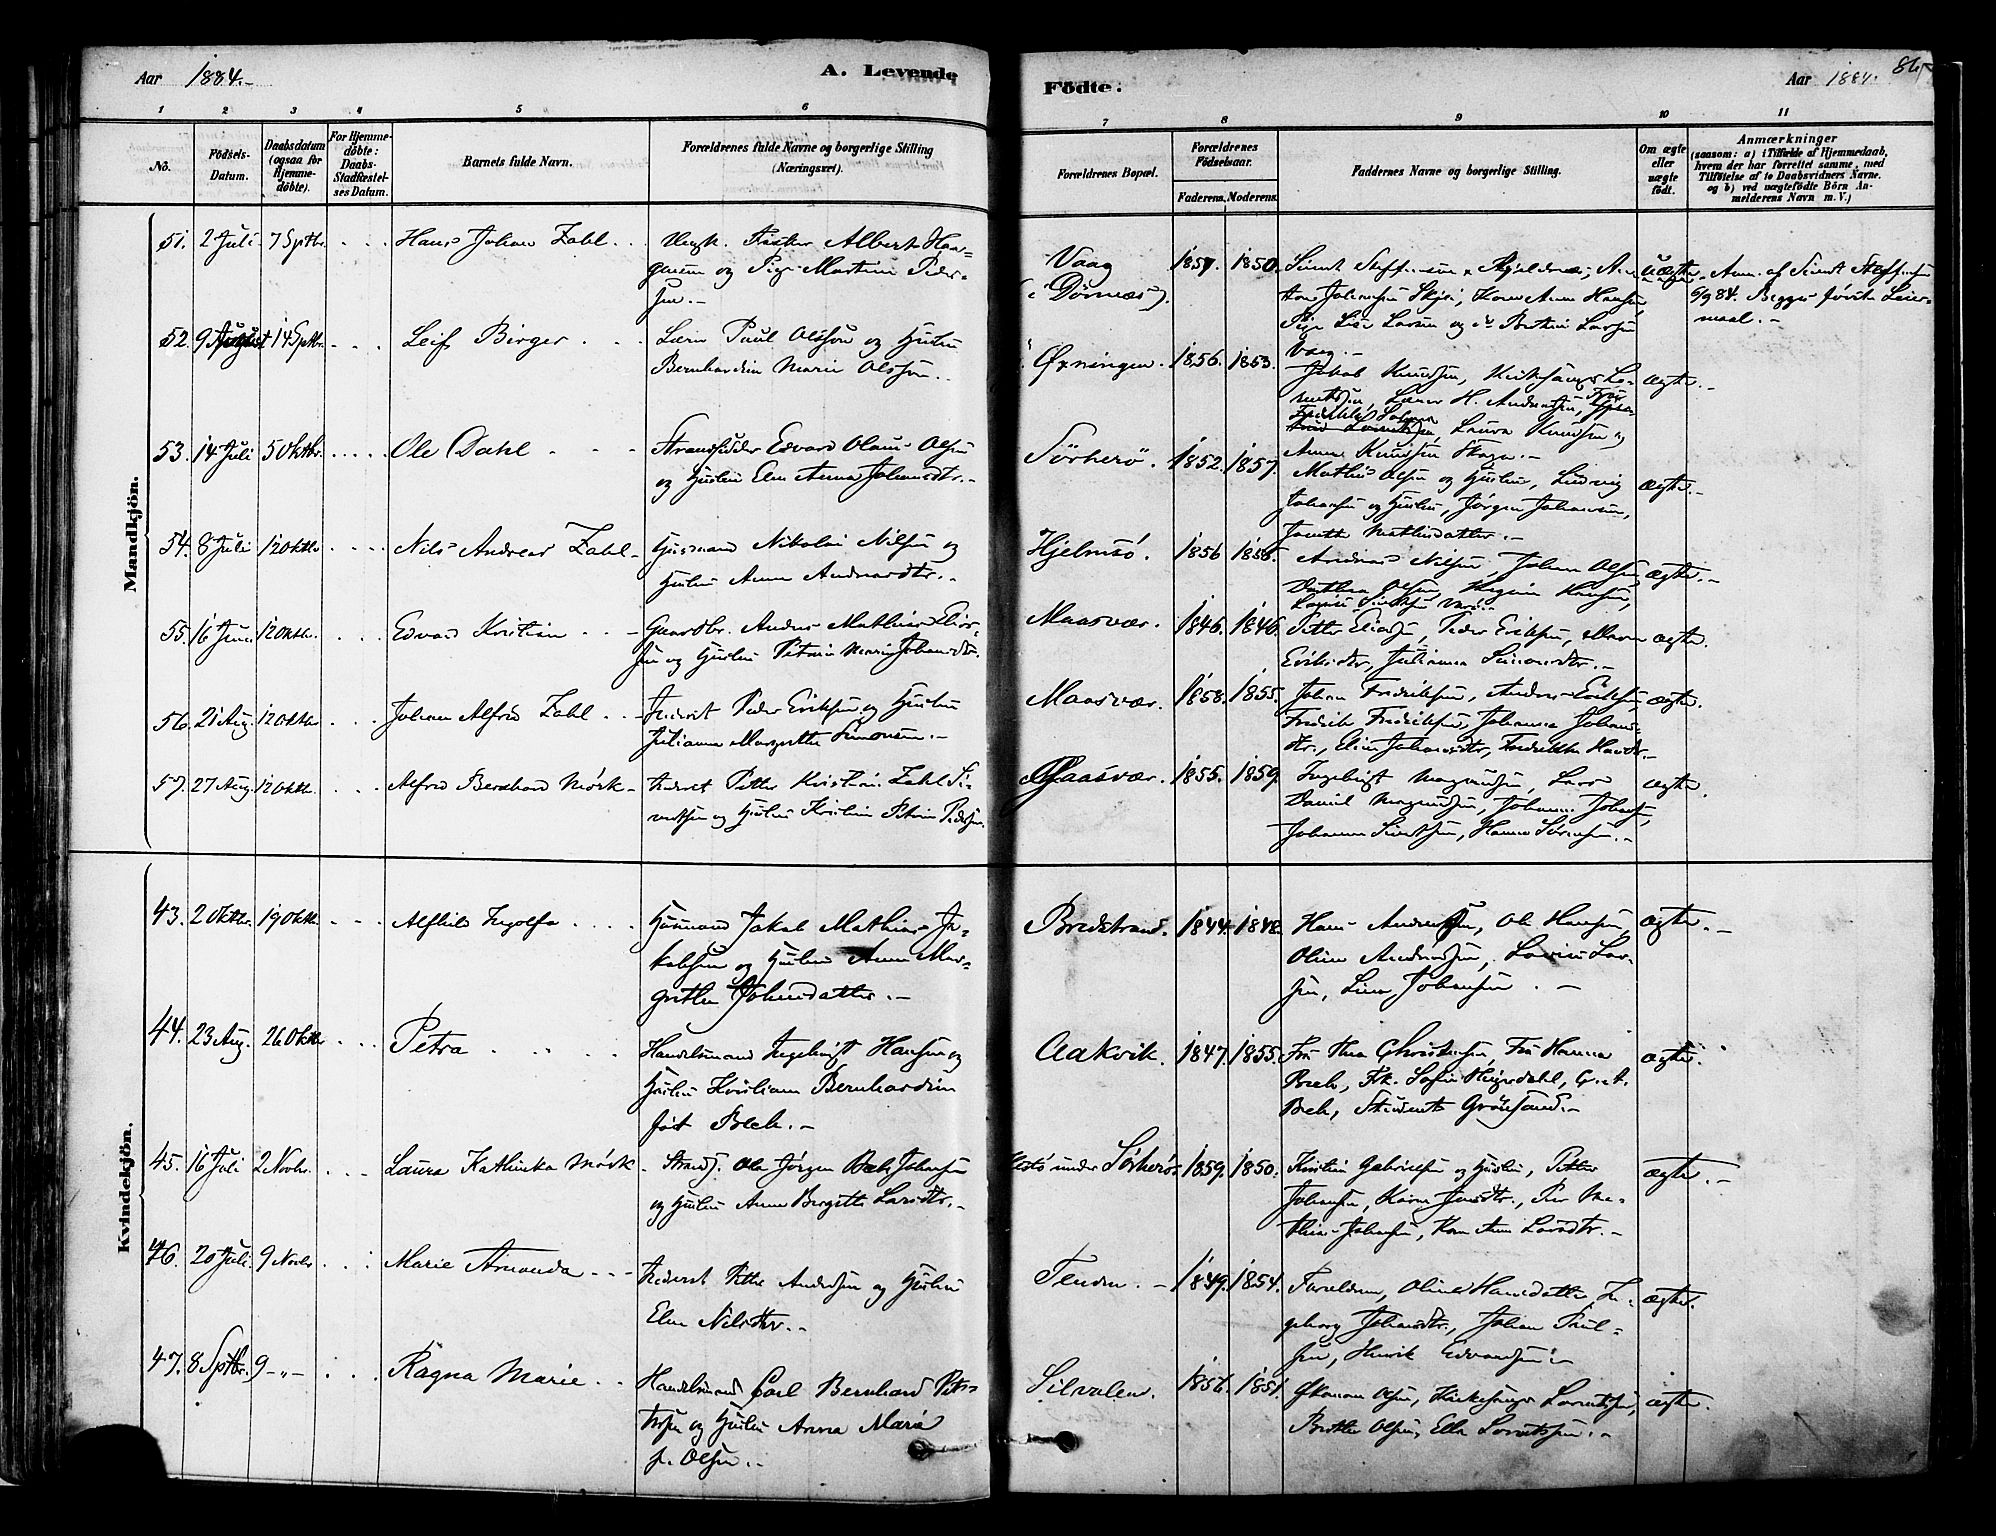 Aar 1884.-
A. Levende
Födte.
Aar 1884.
1 2 3 4 5 6 7 8 9 10 11
No.
Födsels-Datum.
Daabsdatum (ogsaa for Hjemme-döbte).
For Hjemme-döbte: Daabs-Stadfæstel-ses Datum.
Barnets fulde Navn.
Forældrenes fulde Navne og borgerlige Stilling (Næringsvei).
Forældrenes Bopæl.
Forældrenes Födselsaar.
Faderens. Moderens.
Faddernes Navne og borgerlige Stilling.
Om ægte eller uægte födt.
Anmærkninger
(saasom: a) i Tilfælde af Hjemmedaab, hvem der har forrettet samme, med Tilföielse af to Daabsvidners Navne. og b) ved uægtefödte Börn An-melderens Navn m. V.)
Mandkjön.
51. 2 Juli 7 Sptbr. Hans Johan Zahl Ungk. Fisker Albert Haa-
gensen og Pige Martine Peder-
sen.-
Vaag (i Dönnæs). 1857. 1850. uægte
6/9 84. Begges første Leier-
maal.-
52. 9 August 14 Sptbr. Leif Birger Lærer Paul Olsson og Hustru
Bernhardine Marie Olsson.
Øxningen. 1856. 1853. Jakob Knudsen, Kirkesanger Lo-
rentsen, Lærer H. Andersen,
Laura Knudsen
ægte.-
53. 14 Juli 5 Oktbr. Ole Dahl Strandsidder Edvard Olaus Olsen
og Hustru Elen Anna Johansdtr.-
Sörherö. 1852. 1857. Mathis Olsen og Hustru, Ludvig
Johansen og Hustru, Jørgen Johansen,
Mathisdatter.-
ægte.-
54. 8 Juli 12 Oktbr Nils Andreas Zahl Husmand Nikolai Nilsen og
Hustru Anne Andreasdtr.-
Hjelmsö. 1856 1855. Andreas Nilsen, Johan Olsen,
Olsen, Hansen,
ægte.-
55. 16 Juni 12 Oktbr. Edvard Kristian Gaardbr. Anders Mathias Elias-
sen og Hustru Petrine Marie Johansdtr.
Maasvær. 1846. 1846. Petter Eliassen, Peder Eriksen, Maren
Eriksdtr, Julianna Simonsdtr.-
ægte.
56. 21 Aug. 12 Oktbr Johan Alfred Zahl Inderst Peder Eriksen og Hustru
Julianne Margrethe Simonsen.-
Maasvær. 1858. 1855. Johan Fredriksen, Anders Eriksen,
Fredrik Fredriksen, Johanna Johans-
dtr., Elen Johansdtr, Fredrikke
ægte.
57. 27 Aug. 12 Oktbr. Alfred Bernhard Mörk Inderst Petter Kristian Zahl Si-
vertsen og Hustru Kristine Petrine Pedersen.
Gaasvær. 1855. 1859. Ingebrigt Magnussen, Lars
Daniel Magnussen, Johannes Johansen,
Johanna Sivertsen, Hanna Sörensen.-
ægte.
Kvindekjön.
43. 2 Oktbr. 19 Oktbr. Alfhild Ingolfa Husmand Jakob Mathias Ja-
kobsen og Hustru Anne Mar-
grethe Johnsdatter.-
Bredstrand. 1844. 1848. Hans Andersen, Ole Hansen,
Oline Andersen, Lovise Lar-
sen, Lina Johansen.-
ægte.-
44. 23 Aug. 26 Oktbr Petra Handelsmand Ingebrigt Hansen og
Hustru Kristiane Bernhardine
født Bech.-
Aakvik. 1847. 1855. Fru Thea Christensen, Fru Hanna
Bech, Frk. Sofie Heigerdahl,
Bech, Student Grönsand.-
ægte.
45. 16 Juli 2 Novbr. Laura Kathinka Mörk Strands. Ole Jørgen Johansen
og Hustru Anne Bergitte Larsdtr.-
under Sörherö 1859. 1850. Kristian Gabrielsen og Hustru, Petter
Johansen, Karen Jensdtr., Peer Ma-
thias Johansen, Kone Anne Larsdtr.-
ægte.-
46. 20 Juli 9 Novbr. Marie Amanda Inderst Petter Andersen og Hustru
Elen Nilsdtr.-
Tenden.- 1849. 1854. Forældrene, Oline Hansdatter, In-
geborg Johansdtr., Johan Paul-
sen, Henrik Edvardsen.-
ægte.
47. 8 Sptbr. 9 -"- Ragna Marie Handelsmand Carl Bernhard Peter-
sen og Hustru Anna Maria
f. Olsen.-
Silvalen. 1856. 1851. Olsen, Kirkesanger Lorentsen,
Olsen, Ella Lorentsen.-
ægte.